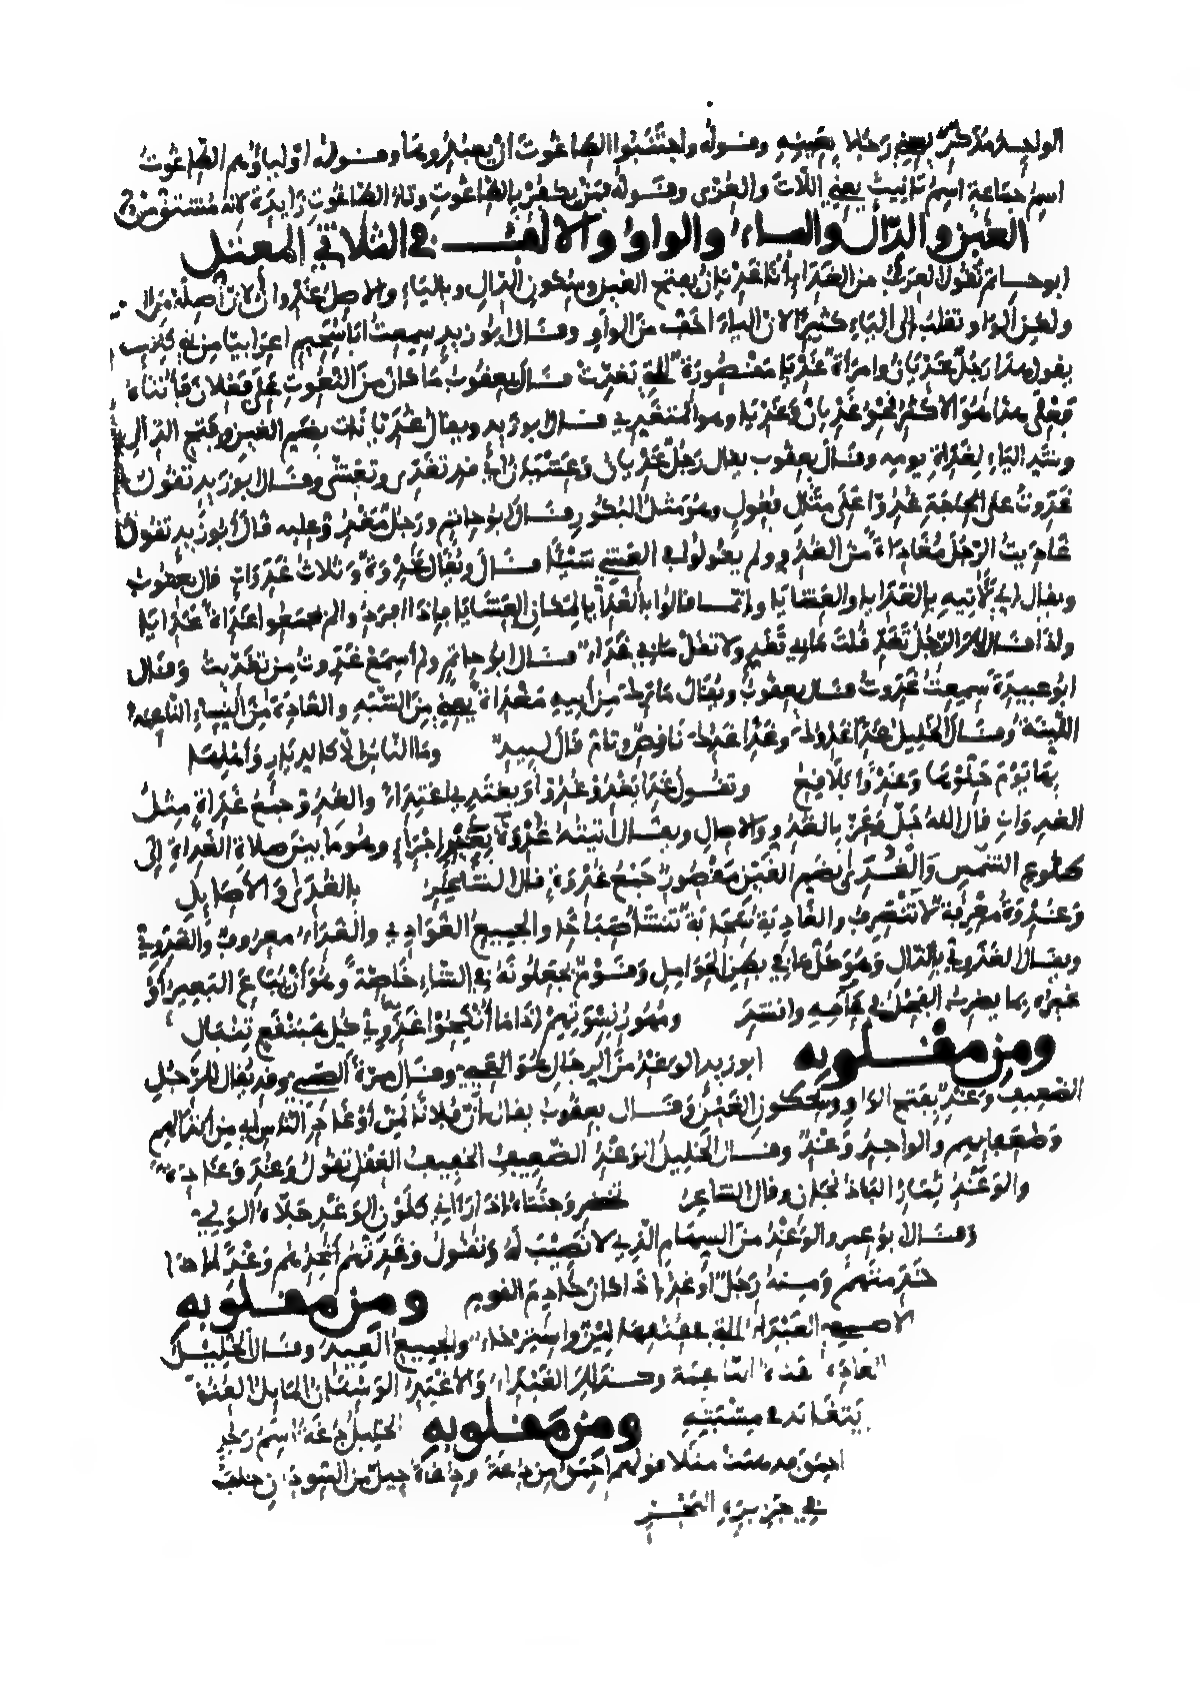 الواحد مذكر يعني رجلا بعينه وقوله واجتنبوا الطاغوت أن يعبدوها وقوله أولياؤهم الطاغوت
اسم جماعة اسم تانيث يعني اللات والعزى وقوله فمن يكفر بالطاغوت وتاء الطاغوت زايدة كانه مشتق من
الغين والدال والياء والواو والالف في الثلاثي المعتل
ابو حاتم تقول العرب من الغداء أنا غديان بفتح الغين وسكون الدال وبالياء والاصل غدوان لان أصله من ال
ولكن الواو تقلب إلى الياء كثيرا لان الياء اخف من الواو وقال ابو زيد سمعت اعرابيا من بني كلاب
يقول هذا رجل غديان وامرأة غديا مقصورة التي تغدت قال يعقوب ما كان من النعوت على فعلان فأنثاه
فعلى هذا هو الاكثر نحو غديان وغديا وهو المتغدي قال ابو زيد ويقال غديانات بضم الغين وفتح الدال
وشد الياء لغداة يومه وقال يعقوب يقال رجل غديان وعشيان أي قد تغدى وتعشى وقال ابو زيد تقول
غدوت على الحاجة غدوا على مثال فعول وهو مثل البكور قال ابو حاتم ورجل مغد وعليه قال أبو زيد تقول
غاديت الرجل مغاداة من الغدو ولم يقولوا في العشي شيئا قال ويقال غدوة وثلاث غدوات قال يعقوب
ويقال اني لاتيه بالغدايا والعشايا وانما قالوا بالغدايا لمكان العشايا فاذا افردوا لم يجمعوا غداة غدايا
واذا قال لك الرجل تغد قلت ما بي تغد ولا تقل ما بي غداء قال ابو حاتم ولم أسمع غدوت من تغديت وقال
ابو عبيدة سمعت غدوت قال يعقوب ويقال ما ترك من أبيه مغداة يعني من الشبه والغادة من النساء الناعمة
اللينة وقال الخليل غدا غدوك وغدا غدك ناقص وتام قال لبيد وما الناس الا كالديار وأهلها
بها يوم حلوها وغدوا بلاقع وتقول غدا يغدو غدوا ويغتدي اغتداء والغدو جمع غداة مثل
الغدوات قال الله جل وعز بالغدو والاصال ويقال أتيته غدوة وهو ما بين صلاة الغداة إلى
طلوع الشمس والغدى بضم الغين مقصور جمع غدوة قال الشاعر بالغدى والأصايل
وغدوة معرفة لا تنصرف والغادية سحابة تنشأ صباحا والجميع الغوادي والغداء معروف والغدوي
ويقال الغذوي بالذال وهو كل ما في بطن الحوامل وقوم يجعلونه في الشاء خاصة وهو أن يباع البعير أو
غيره بما يضرب الفحل في عامه وانشد ومهور نسوتهم اذا ما أنكحوا غدوي كل هبنقع تنبال
ومن مقلوبه ابو زيد الوغد من الرجال هو وقال مرة الصبي وقد يقال للرجل
الضعيف وغد بفتح الواو وسكون الغين وقال يعقوب يقال أن فلانا لمن أوغاد الناس أي من أنذالهم
وضعفايهم والواحد وغد وقال الخليل الوغد الضعيف الخفيف العقل تقول وغد وغادة
والوغد ثمار الباذنجان وقال الشاعر
وقال ابو عمرو والوغد من السهام الذي لا نصيب له وتقول وغدتهم أغدهم وغدا اذا
خدمتهم ومنه رجل وغد اذا كان خادم القوم ومن مقلوبه
الاصمعي الغيداء التي في عنقها لين واسترخاء والجميع الغيد وقال الخليل
الغادة الفتاة الناعمة وكذلك الغيداء والأغيد الوسنان المايل العنق
يتغايد في مشيته ومن مقلوبه الخليل دغة اسم رجل
احمق يقال في مثلا هو أحمق من دغة ودغاوة جيل من السودان خلف
في جزيرة البحر